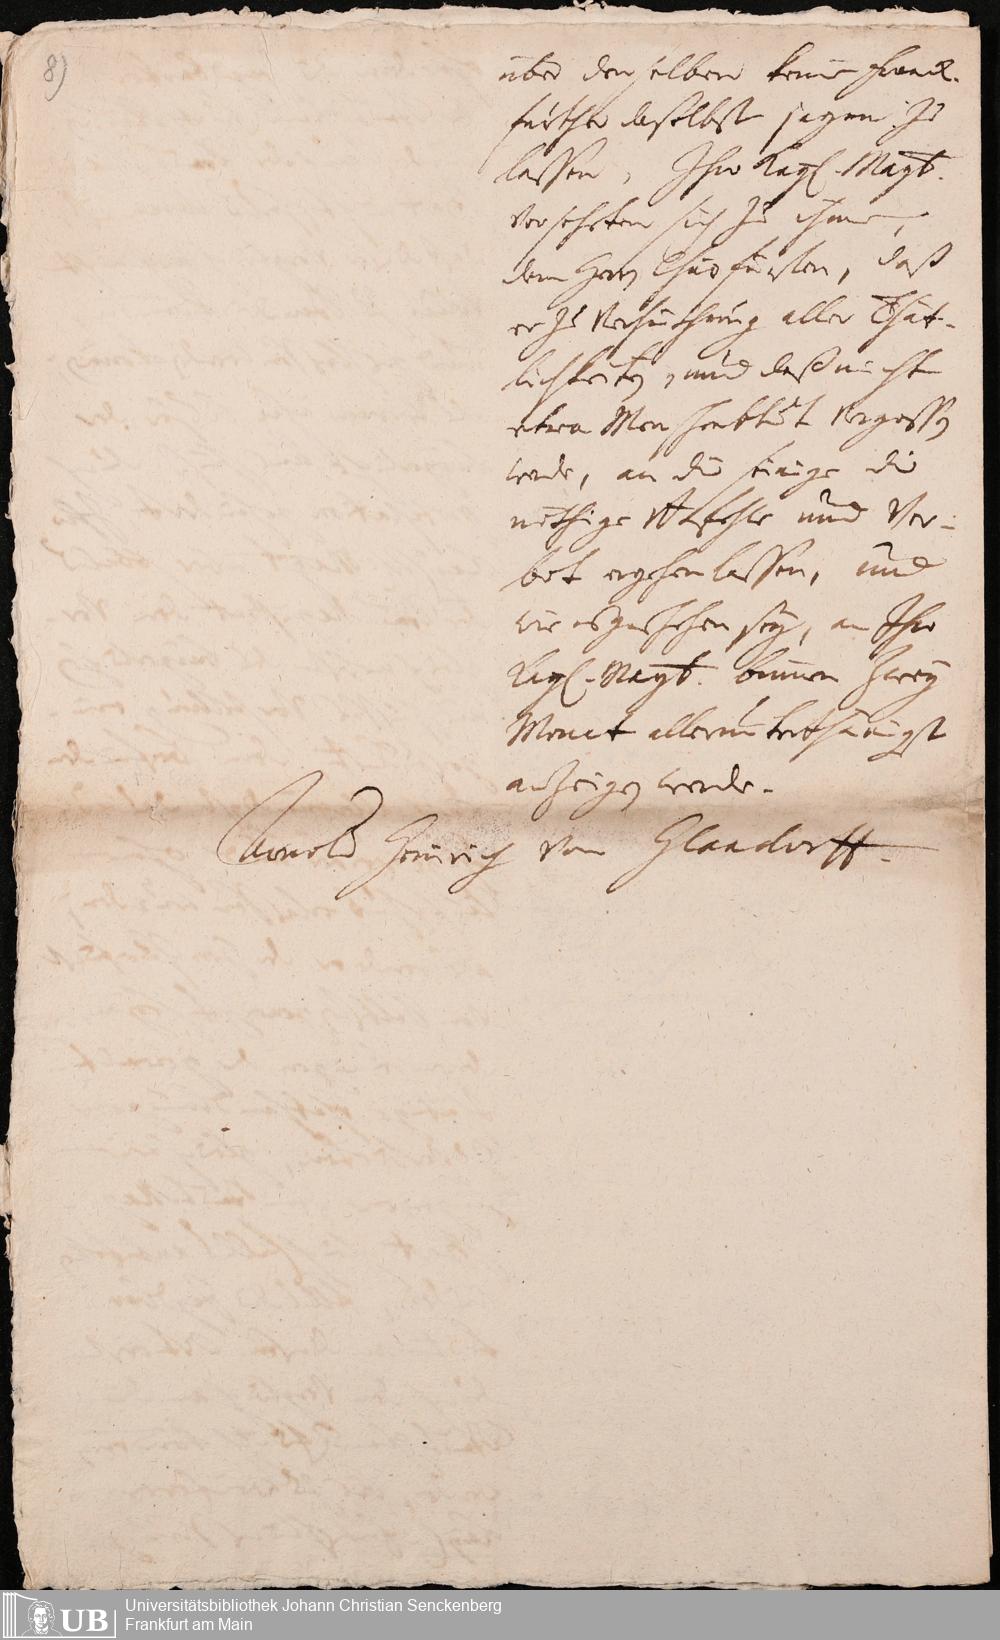 8)
über denselben keine Franck-
further daselbst jagen zu
lassen, Ihro Kayl. Mayt.
versehten sich zu ihme,
dem Herrn Churfürsten, daß
er zu Verhüthung aller Thät-
lichkeiten, und daß nicht
etwa Menschenblut vergossen
werde, an die seinige die
nöthige Befehle und Ver-
bot ergehen lassen, und
wie es geschehen sey, an Ihro
Kayl. Mayt. binnen zwey
Monat allerunterthänigst
anzeigen werde.
Arnold Heinrich von Glandorff.
UB Universitätsbibliothek Johann Christian Senckenberg
Frankfurt am Main